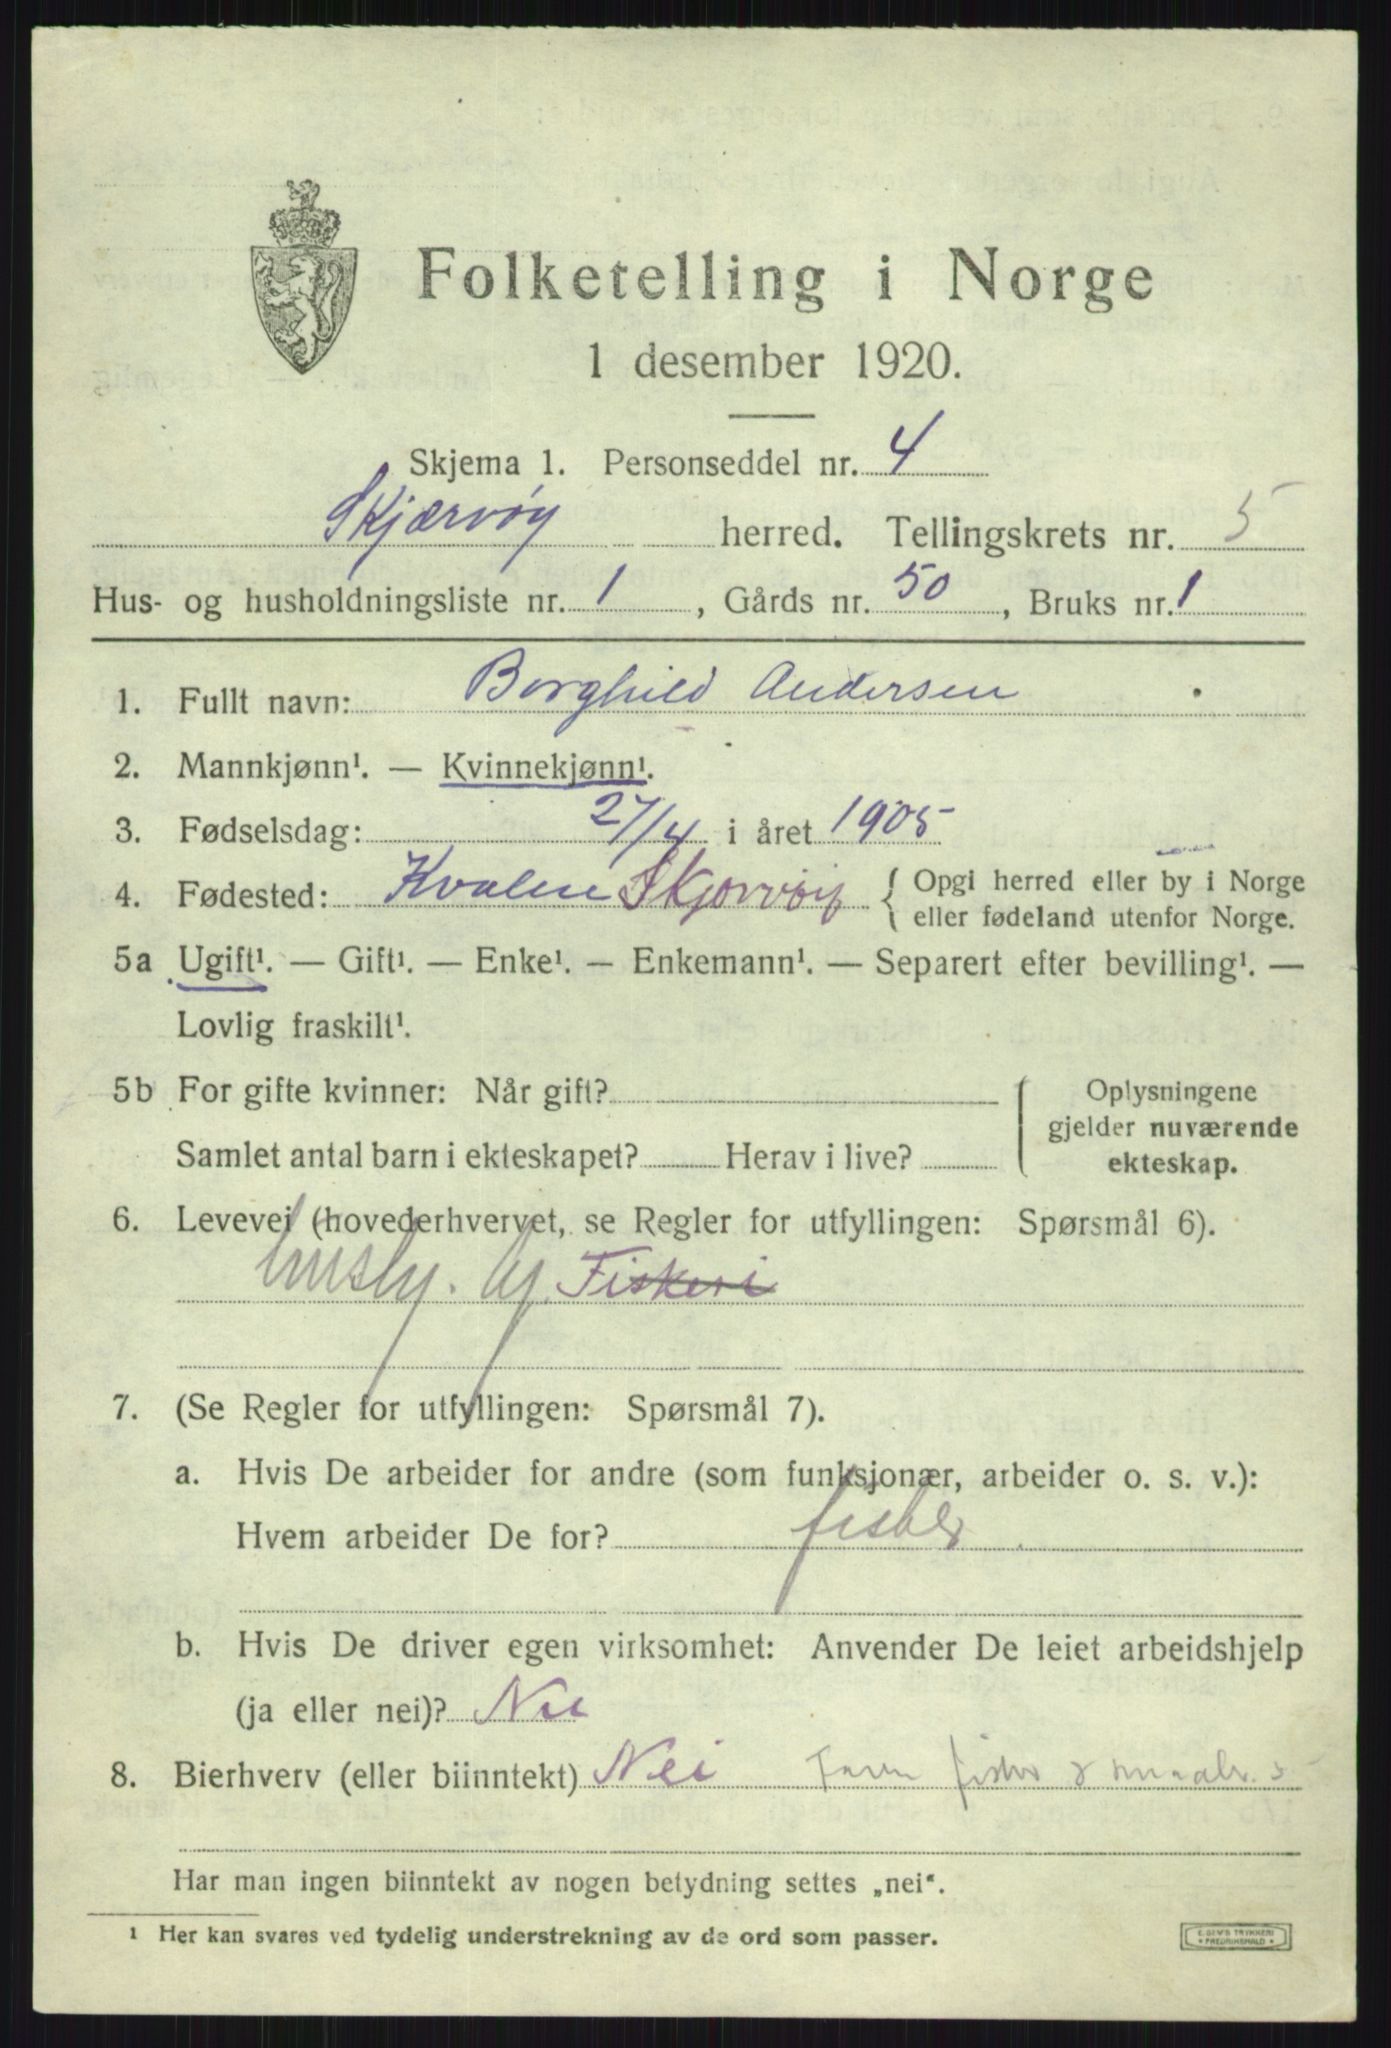 Folketelling i Norge
1 desember 1920.
Skjema 1. Personseddel nr. 4
Skjærvøy herred. Tellingskrets nr. 5
Hus- og husholdningsliste nr. 1, Gårds nr. 50, Bruks nr. 1
1. Fullt navn: Borghild Andersen
2. Mannkjønn¹. — Kvinnekjønn¹.
3. Fødselsdag: 27/4 i året 1905
4. Fødested: Kvalen Skjærvøy { Opgi herred eller by i Norge
eller fødeland utenfor Norge.
5a Ugift¹. — Gift¹. — Enke¹. — Enkemann¹. — Separert efter bevilling¹. —
Lovlig fraskilt¹.
5b For gifte kvinner: Når gift?
Samlet antal barn i ekteskapet? Herav i live?
{ Oplysningene
gjelder nuværende
ekteskap.
6. Levevei (hovederhvervet, se Regler for utfyllingen: Spørsmål 6).
Fiskeri
7. (Se Regler for utfyllingen: Spørsmål 7).
a. Hvis De arbeider for andre (som funksjonær, arbeider o. s. v.):
Hvem arbeider De for?
b. Hvis De driver egen virksomhet: Anvender De leiet arbeidshjelp
(ja eller nei)? Nei
8. Bierhverv (eller biinntekt) Nei Faren fisker &
Har man ingen biinntekt av nogen betydning settes „nei“.
¹ Her kan svares ved tydelig understrekning av de ord som passer.
E. SEM'S TRYKKERI
FREDRIKSHALD